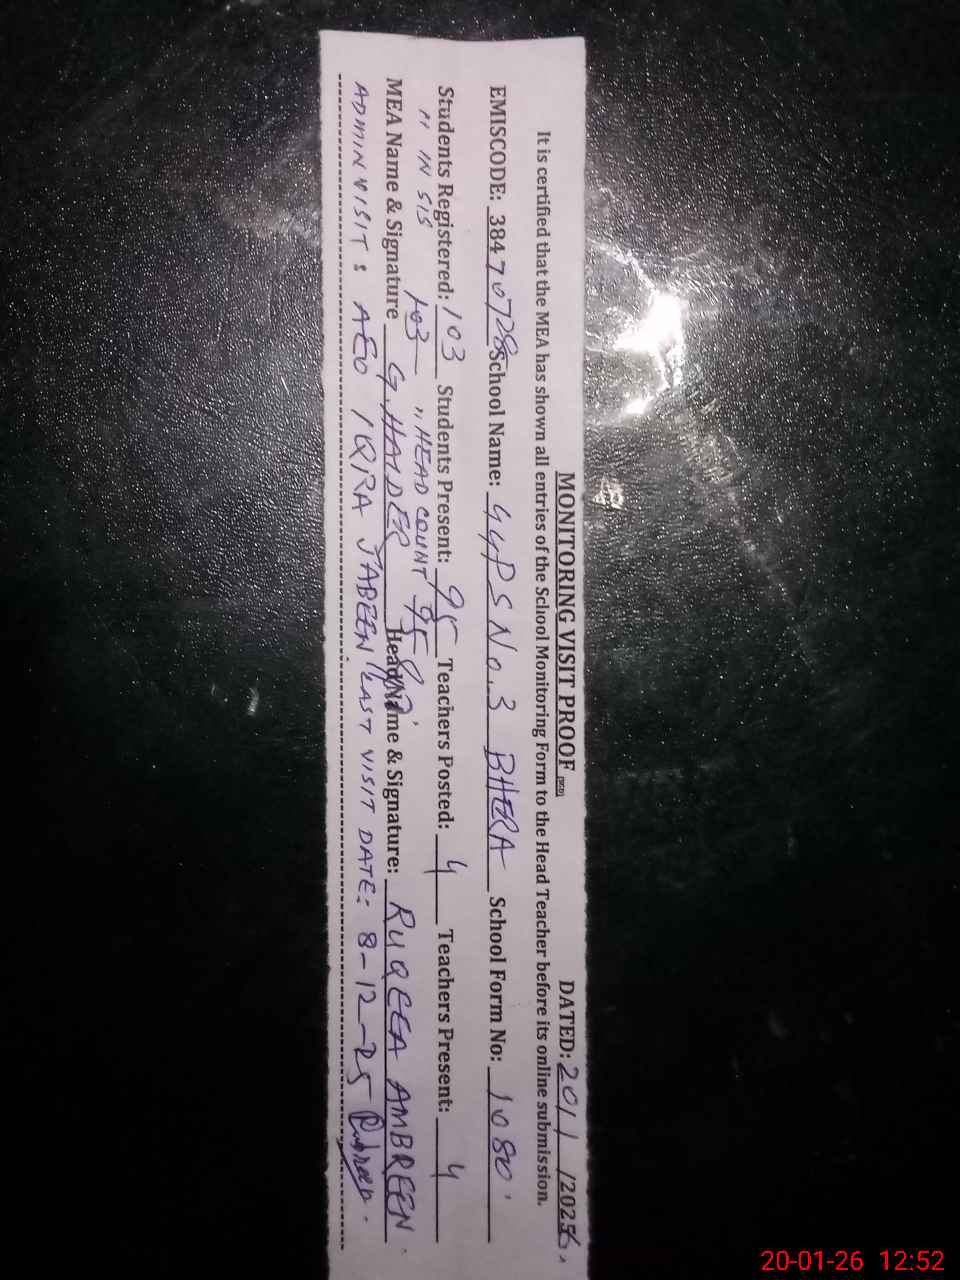 MONITORING VISIT PROOF DATED: 20/1/2026.
It is certified that the MEA has shown all entries of the School Monitoring Form to the Head Teacher before its online submission.
EMISCODE: 38470728 School Name: GGPS No. 3 BHERA School Form No: 1080
Students Registered: 103 Students Present: 95 Teachers Posted: 4 Teachers Present: 4
" IN SIS 103 " HEAD COUNT 95
MEA Name & Signature G. HAIDER Head Name & Signature: RUQEEA AMBREEN.
ADMIN VISIT: AEO IQRA JABEEN LAST VISIT DATE: 8-12-25
20-01-26 12:52